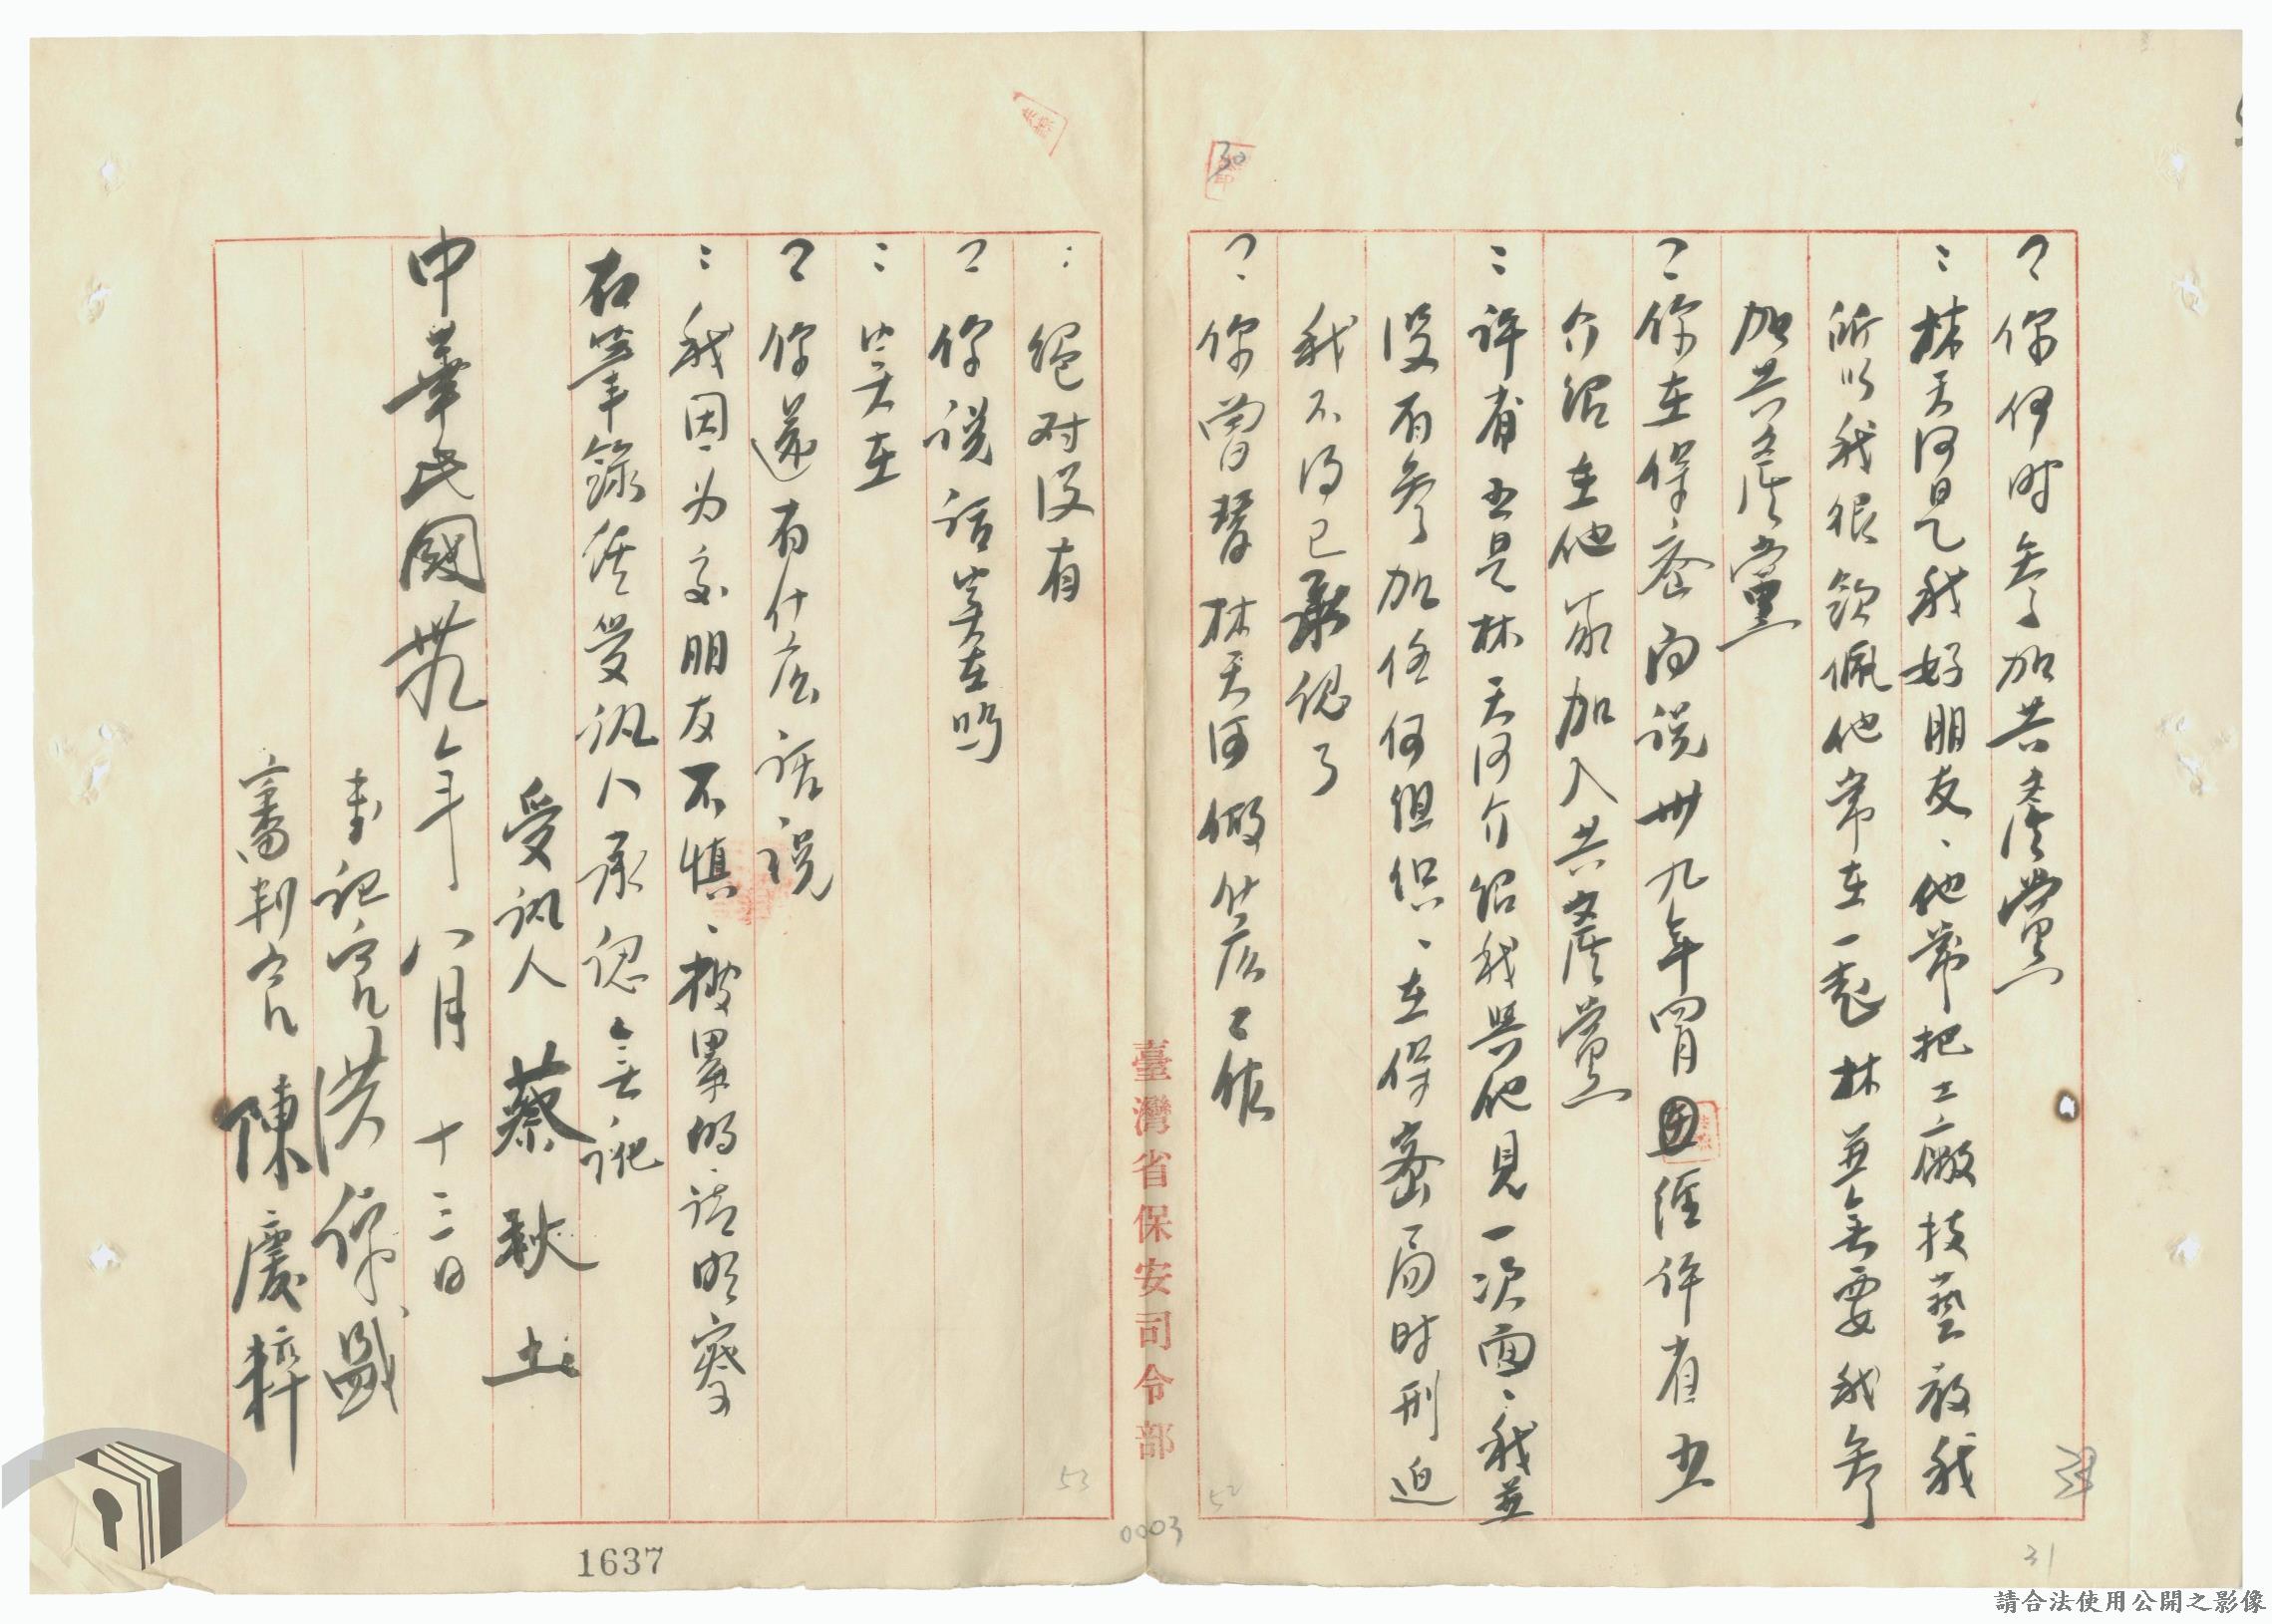 ？你何时參加共產黨
：林天河是我好朋友、他常把工廠技藝教我
所以我很欽佩他常在一起林並無要我參
加共產黨
？你在保密局说卅九年四月因經许省五
介绍在他家加入共產黨
：许省五是林天河介绍我與他見一次面、我並
没有參加任何組织、在保密局时刑迫
我不得已承認了
？你曾替林天河做什麽工作
：绝对没有
？你说话實在吗
：實在
？你還有什麽話说
：我因为交朋友不慎、被累的请明察
右筆錄經受訊人承認無訛
受訊人 蔡秋土
中華民國卅九年八月十三日
書記官 洪保盛
審判官 陳慶粹
臺灣省保安司令部
30
31
52
53
0003
1637
請合法使用公開之影像